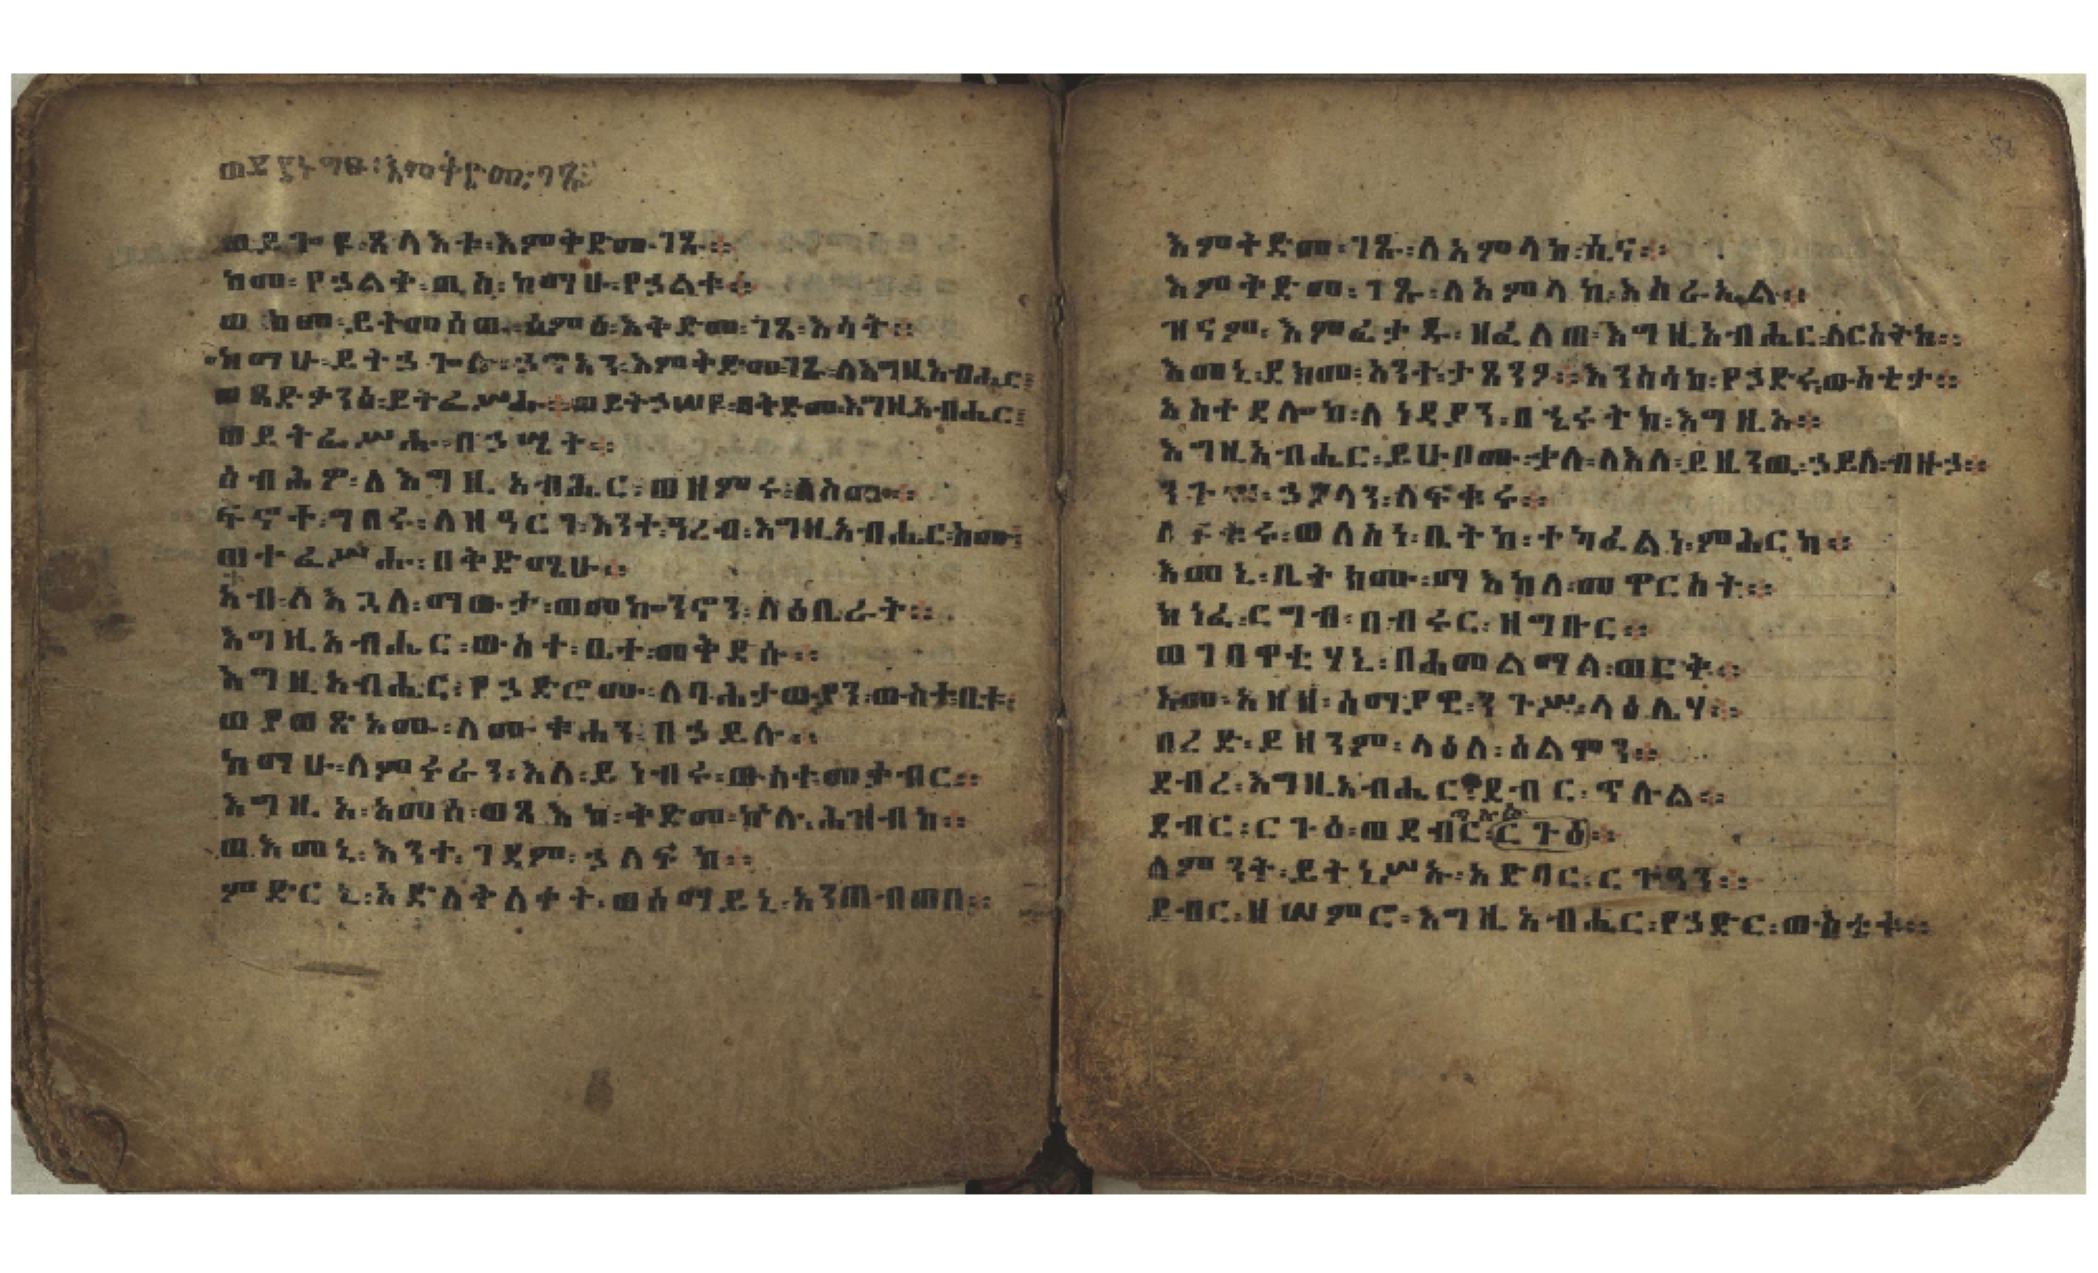 እምቅድመ፡ገጹ
ወይጐዩ፡ጸላእቱ፡እምቅድመ፡ገጹ።
ከመ፡የኃልቅ፡ጢስ፡ከማሁ፡የኃልቁ።
ወከመ፡ይትመሰው፡ሰምዕ፡እቅድመ፡ገጸ፡እሳት።
ከማሁ፡ይትኃጐሉ፡ኃጥአን፡እምቅድመ፡ገጹ፡ለእግዚአብሔር፤
ወጻድቃንሰ፡ይትፌሥሑ።ወይትኃሠዩ፡በቅድመ፡እግዚአብሔር፤
ወይትፌሥሑ፡በኃሤት።
ሰብሕዎ፡ለእግዚአብሔር፡ወዘምሩ፡ለስሙ።
ፍኖተ፡ግበሩ፡ለዝዓርገ፡እንተ፡ዓረብ፡እግዚአብሔር፡ስሙ፤
ወተፈሥሑ፡በቅድሜሁ።
አብ፡ለእጓለ፡ማውታ፡ወመኰንኖን፡ለዕቤራት።
እግዚአብሔር፡ውስተ፡ቤተ፡መቅደሱ።
እግዚአብሔር፡የኃድሮሙ፡ለባሕታውያን፡ውስተ፡ቤት፤
ወያወጽኦሙ፡ለሙቁሐን፡በኃይሉ።
ከማሁ፡ለምሩራን፡እለ፡ይነብሩ፡ውስተ፡መቃብር።
እግዚኦ፡አመሰ፡ወጻእከ፡ቅድመ፡ኵሉ፡ሕዝብከ።
ወእመኒ፡እንተ፡ገዳም፡ኃለፍከ።
ምድርኒ፡አድለቅለቀት፡ወሰማይኒ፡አንጠብጠበ።
እምቅድመ፡ገጹ፡ለአምላከ፡ሲና።
እምቅድመ፡ገጹ፡ለአምላከ፡እስራኤል።
ዝናም፡እምፈታዱ፡ዘፈለጠ፡እግዚአብሔር፡ለርስትከ።
እመኒ፡ደክመ፡አንተ፡ታጸንዖ።እንስሳከ፡የኃድሩ፡ውስቴታ።
አስተዳሎከ፡ለነዳያን፡በኂሩትከ፡እግዚኦ።
እግዚአብሔር፡ይሁቦሙ፡ቃለ፡ለእለ፡ይዜንዉ፡ኃይለ፡ብዙኃ።
ንጉሠ፡ኃያላን፡ለፍቁሩ።
ለፍቁሩ፡ወለስነ፡ቤትከ፡ተካፈልነ፡ምሕርካ።
እመኒ፡ቤትክሙ፡ማእከለ፡መዋርስት።
ክነፈ፡ርግብ፡በብሩር፡ዘግቡር።
ወገበዋቲሃኒ፡በሐመልማለ፡ወርቅ።
አመ፡አዘዘ፡ሰማያዊ፡ንጉሥ፡ላዕሌሃ።
በረድ፡ይዘንም፡ላዕለ፡ሰልሞን።
ደብረ፡እግዚአብሔር፡ደብር፡ጥሉል።
ደብር፡ርጉዕ፡ወደብር፡ርጉዕ።
ለምንት፡ይትኔሥኡ፡አድባር፡ርጉዓን።
ደብር፡ዘሠምሮ፡እግዚአብሔር፡የኃድር፡ውስቴቱ።